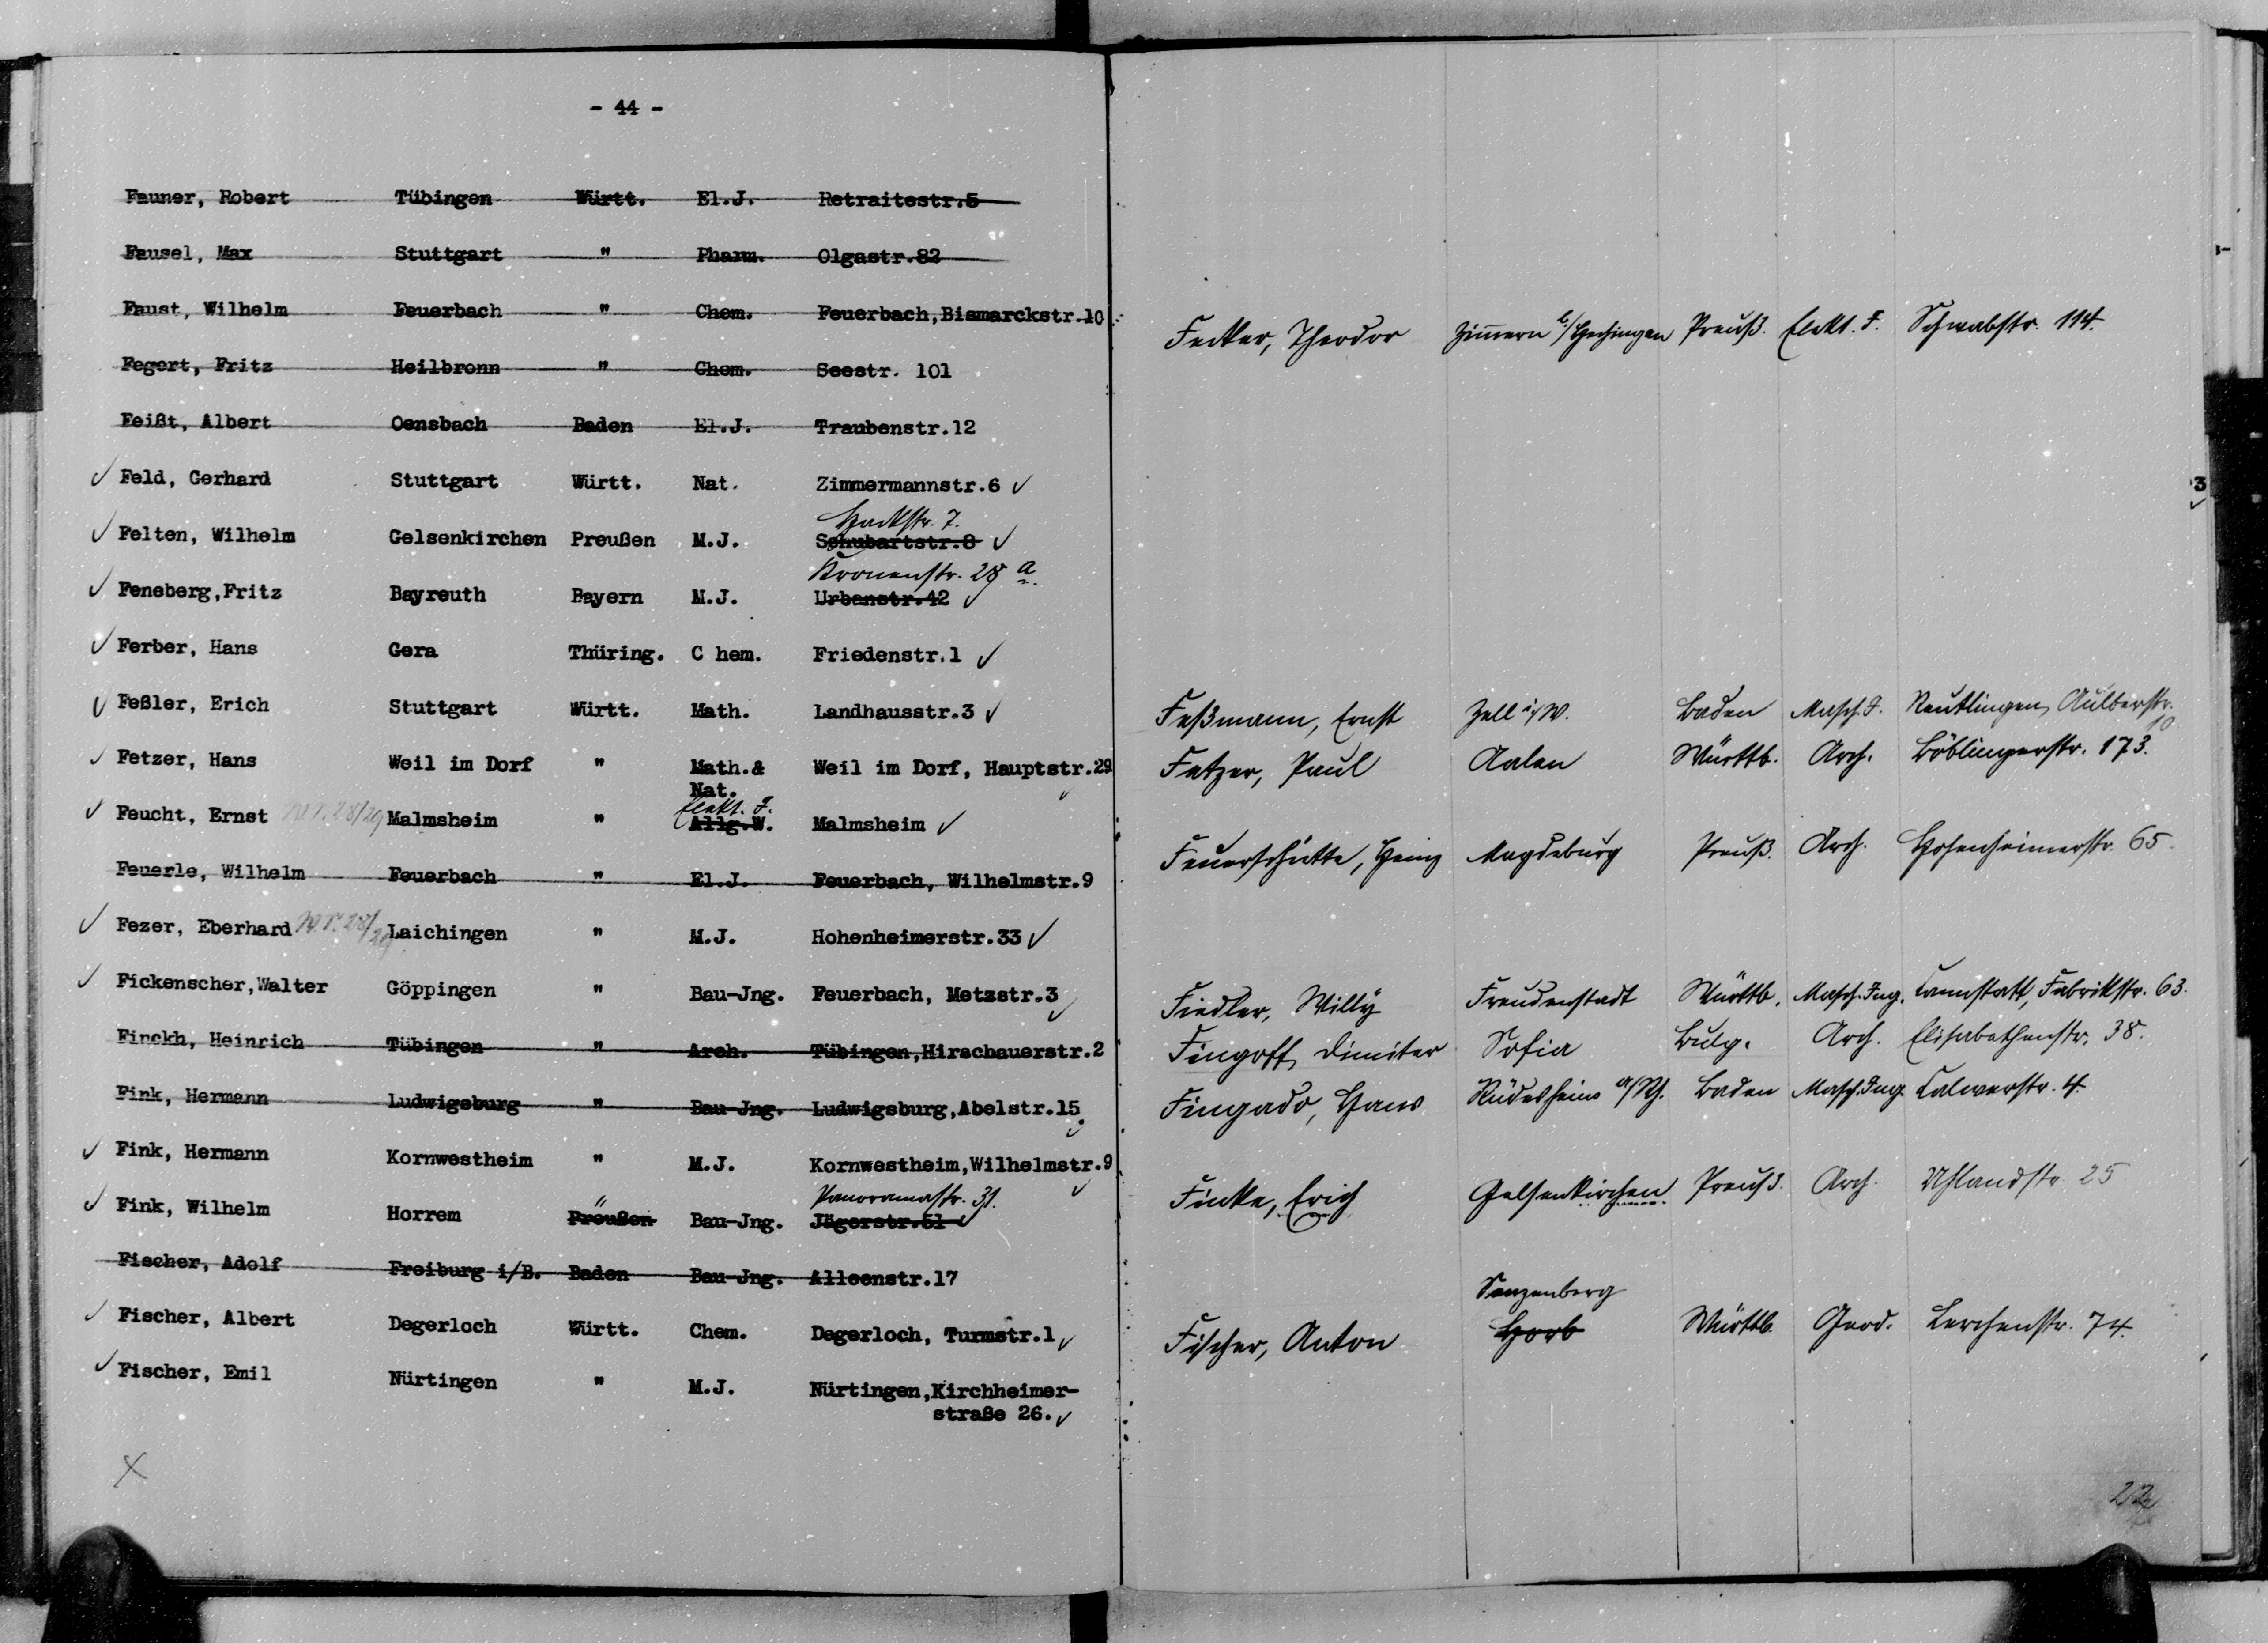 - 44 -
Fauner, Robert Tübingen Württ. El.J. Retraitestr.5
Fausel, Max Stuttgart " Pharm. Olgastr.82
Faust, Wilhelm Feuerbach " Chem. Feuerbach,Bismarckstr.10
Fegert, Fritz Heilbronn " Chem. Seestr. 101
Feißt, Albert Oensbach Baden El.J. Traubenstr.12
✓ Feld, Gerhard Stuttgart Württ. Nat. Zimmermannstr.6 ✓
Hackstr. 7.
✓ Felten, Wilhelm Gelsenkirchen Preußen M.J. Schubartstr.8 ✓
Kronenstr. 28 a
✓ Feneberg,Fritz Bayreuth Bayern M.J. Urbanstr.42 ✓
✓ Ferber, Hans Gera Thüring. C hem. Friedenstr.1 ✓
✓ Feßler, Erich Stuttgart Württ. Math. Landhausstr.3 ✓
✓ Fetzer, Hans Weil im Dorf " Math.& Weil im Dorf, Hauptstr.29
Nat. ✓
Elekt. I.
✓ Feucht, Ernst W.S. 28/29 Malmsheim " Allg.W. Malmsheim ✓
Feuerle, Wilhelm Feuerbach " El.J. Feuerbach, Wilhelmstr.9
✓ Fezer, Eberhard W.S. 28/29 Laichingen " M.J. Hohenheimerstr.33 ✓
✓ Fickenscher,Walter Göppingen " Bau-Jng. Feuerbach, Metzstr.3 ✓
Finckh, Heinrich Tübingen " Arch. Tübingen,Hirschauerstr.2
Fink, Hermann Ludwigsburg " Bau-Jng. Ludwigsburg,Abelstr.15
✓ Fink, Hermann Kornwestheim " M.J. Kornwestheim,Wilhelmstr.9 ✓
" Panoramastr. 31.
✓ Fink, Wilhelm Horrem Preußen Bau-Jng. Jägerstr.51 ✓
Fischer, Adolf Freiburg i/B. Baden Bau-Jng. Alleenstr.17
✓ Fischer, Albert Degerloch Württ. Chem. Degerloch, Turmstr.1 ✓
✓ Fischer, Emil Nürtingen " M.J. Nürtingen,Kirchheimer-
straße 26. ✓
X
Fecker, Theodor Zimmern b/Hechingen Preuß. Elekt. I. Schwabstr. 114.
3
Feßmann, Ernst Zell i/W. Baden Masch. I. Reutlingen, Aulberstr. 10
Fetzer, Paul Aalen Württb. Arch. Böblingerstr. 173.
Feuerschütte, Heinz Magdeburg Preuß. Arch. Hohenheimerstr. 65.
Fiedler, Willy Freudenstadt Württb. Masch. Ing. Cannstatt, Fabrikstr. 63.
Fingoff, Dimiter Sofia Bulg. Arch. Elisabethenstr. 38.
Fingado, Hans Rüdesheim a/Rh. Baden Masch. Ing. Calwerstr. 4.
Finke, Erich Gelsenkirchen Preuß. Arch. Uhlandstr 25
Fischer, Anton Horb Württb. Geod. Lerchenstr. 74.
22